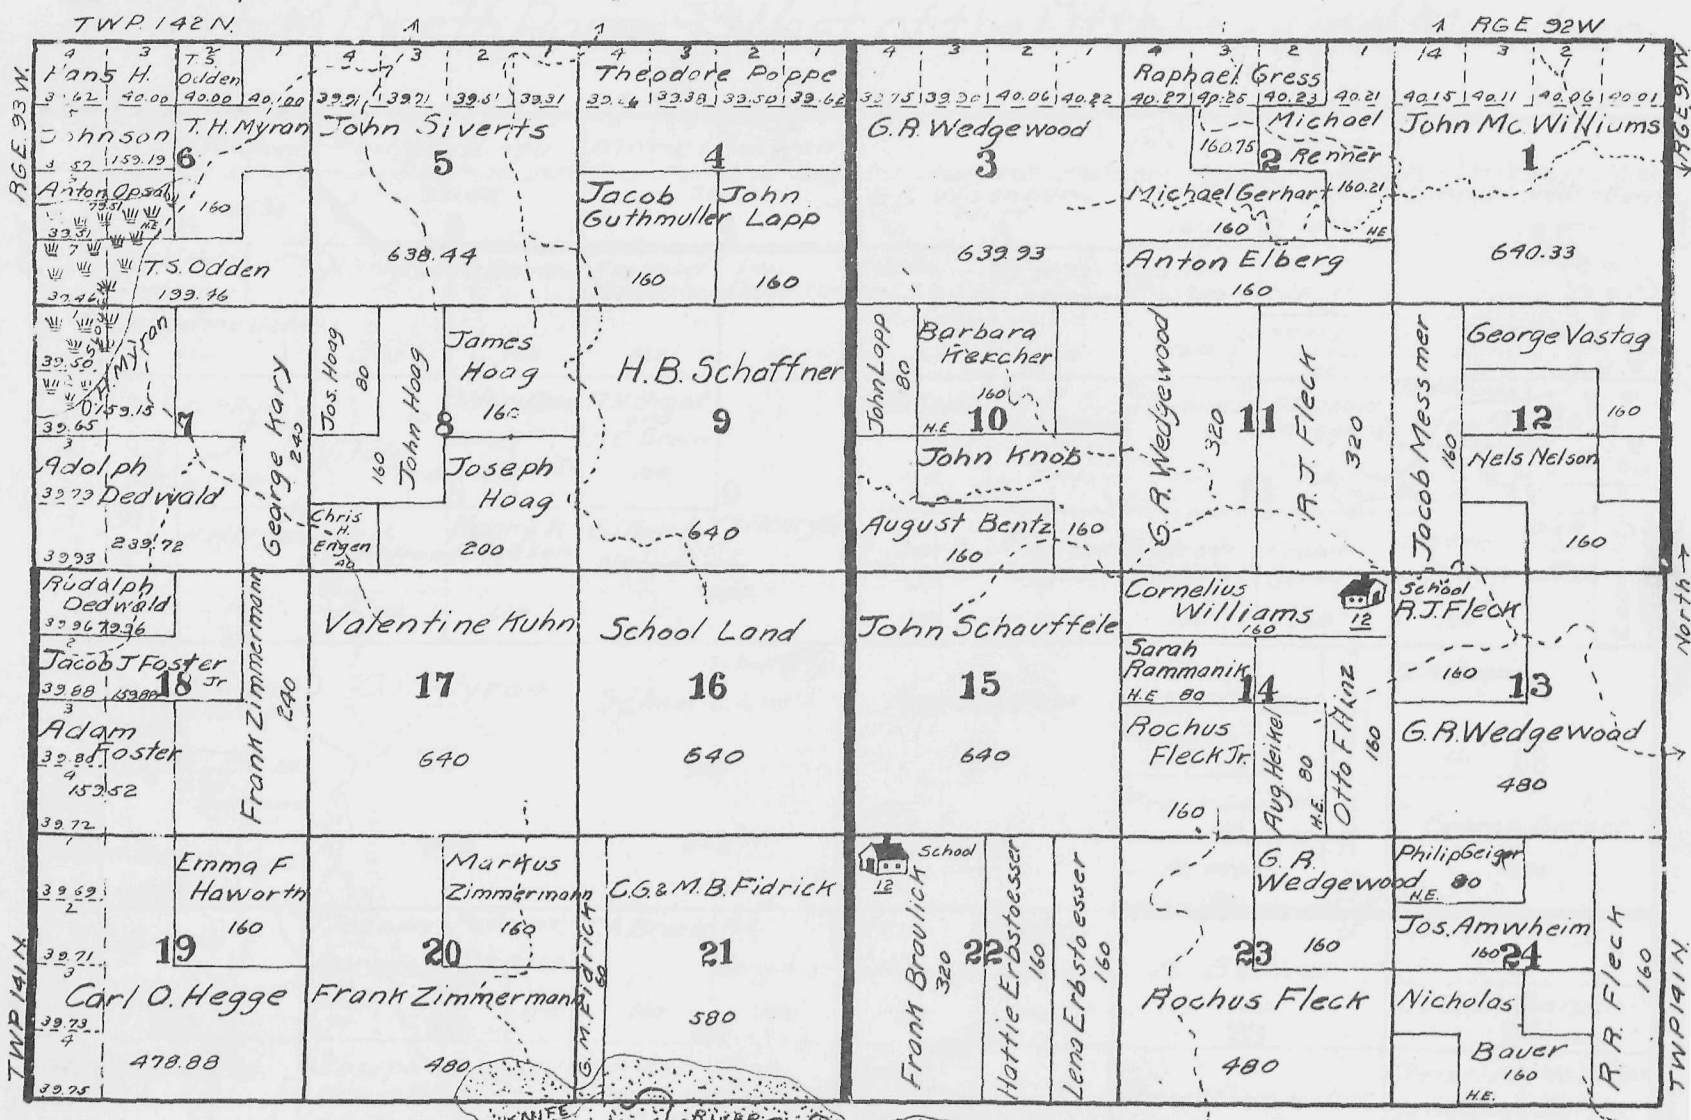 TWP. 142 N.
RGE 92W
RGE. 93 W.
RGE 91W
4 3 2 1
4 3 2 1
4 3 2 1
4 3 2 1
4 3 2 1
4 3 2 1
Hans H.
Johnson
159.19
40.00
T.S.
Odden
40.00
T.H. Myran
160
6
Anton Opsal
79.51
T.S. Odden
199.46
39.91 39.71 39.51 39.31
John Siverts
5
638.44
Theodore Poppe
39.38 39.50 39.62
4
Jacob
Guthmuller
160
John
Lapp
160
40.06 40.22
G.R. Wedgewood
3
639.93
Raphael Gress
40.27 40.25 40.23 40.21
160.75
Michael
Renner
160.21
H.E
2
Michael Gerhart
160
Anton Elberg
160
40.15 40.11 40.06 40.01
John Mc. Williums
1
640.33
39.50
39.65
O.H. Myran
159.15
7
George Kary
240
Adolph
39.79 Dedwald
239.72
39.93
Jos. Hoag
80
John Hoag
160
8
James
Hoag
160
Joseph
Hoag
200
Chris
H.
Engen
40
H.B. Schaffner
9
640
John Lapp
80
Barbara
Kercher
160
H.E
10
John Knob
160
August Bentz
160
G.R. Wedgewood
320
11
R.J. Fleck
320
Jacob Messmer
160
George Vastag
160
12
Nels Nelson
160
North
Rudalph
Dedwald
39.96 79.96
2
Jacob J Foster
Jr
39.88 159.88
3
18
Adam
Foster
39.80
4
159.52
39.72
Frank Zimmermann
240
Valentine Kuhn
17
640
School Land
16
640
John Schauffele
15
640
Cornelius
Williams
160
12
Sarah
Rammanik
H.E 80
14
Rochus
Fleck Jr.
160
Aug. Heikel
H.E. 80
Otto F Hinz
160
School
R.J. Fleck
160
13
G.R. Wedgewood
480
39.69
2
39.71
3
39.73
4
39.75
Emma F
Haworth
160
19
Carl O. Hegge
478.88
Markus
Zimmermann
160
20
Frank Zimmermann
480
G.M. Fidricks
60
C.G. & M.B. Fidrick
21
580
KNIFE
RIVER
School
12
Frank Braulick
320
22
Hattie Erbstoesser
160
Lena Erbstoesser
160
G.R.
Wedgewood
160
23
Rochus Fleck
480
Philip Geiger
80
H.E.
Jos. Amwheim
160
24
Nicholas
Bauer
160
H.E.
R.R. Fleck
160
TWP 141 N.
TWP 141 N.